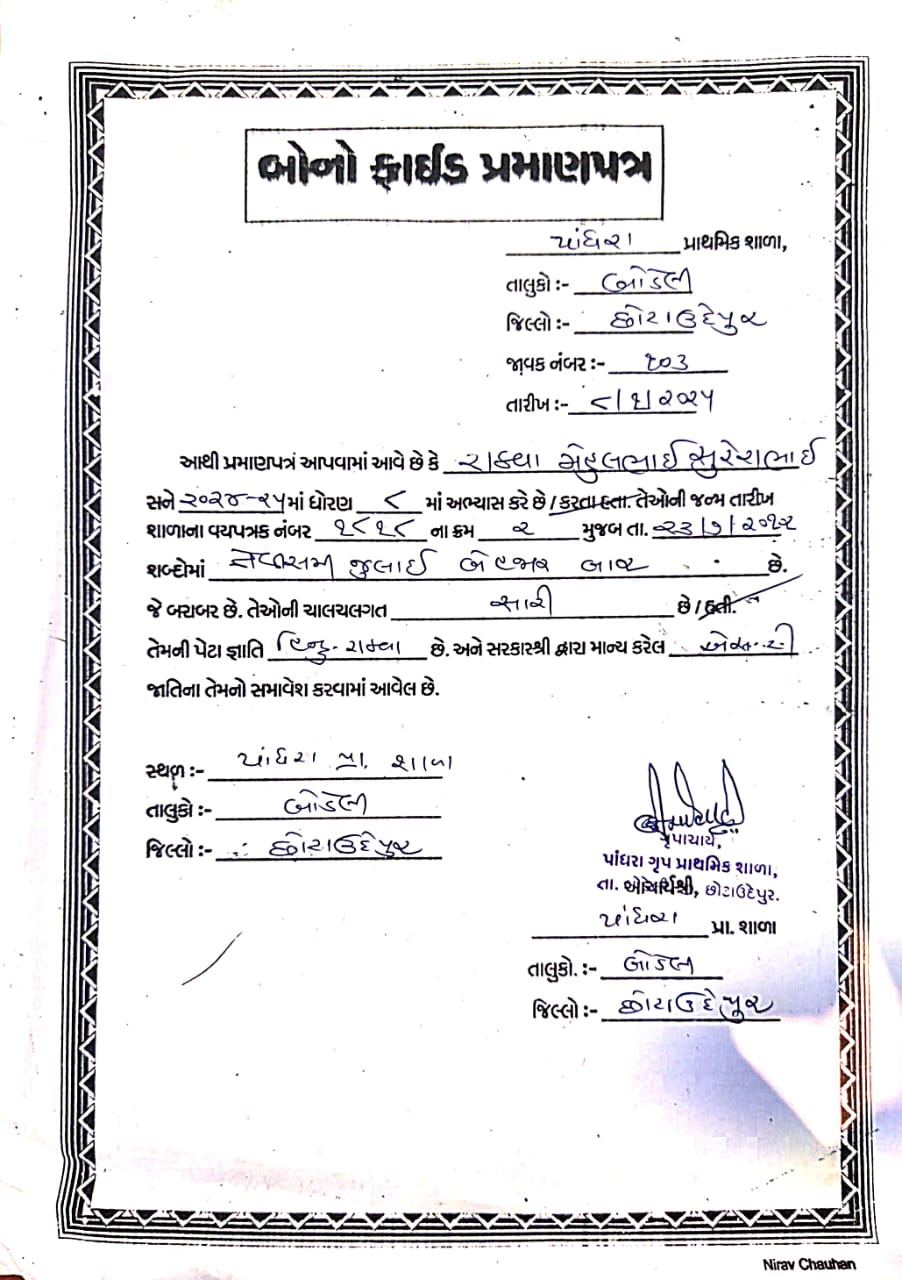 બોનો ફાઈડ પ્રમાણપત્ર
પાંધરા પ્રાથમિક શાળા,
તાલુકો :- બોડેલી
જિલ્લો :- છોટાઉદેપુર
જાવક નંબર :- ૧૦૩
તારીખ :- ૮/૧/૨૦૨૫
આથી પ્રમાણપત્રં આપવામાં આવે છે કે રાઠવા મેહુલભાઈ સુરેશભાઈ
સને ૨૦૨૪-૨૫ માં ધોરણ ૮ માં અભ્યાસ કરે છે / કરતા હતા. તેઓની જન્મ તારીખ
શાળાના વયપત્રક નંબર ૧૮૧૮ ના ક્રમ ૨ મુજબ તા. ૨૩/૭/૨૦૧૨
શબ્દોમાં ત્રેવીસમી જુલાઈ બે હજાર બાર છે.
જે બરાબર છે. તેઓની ચાલચલગત સારી છે / હતી.
તેમની પેટા જ્ઞાતિ હિન્દુ-રાઠવા છે. અને સરકારશ્રી દ્વારા માન્ય કરેલ એસ.ટી
જાતિના તેમનો સમાવેશ કરવામાં આવેલ છે.
સ્થળ :- પાંધરા પ્રા. શાળા
તાલુકો :- બોડેલી
જિલ્લો :- છોટાઉદેપુર
પાંધરા ગૃપ પ્રાથમિક શાળા,
તા. છોટાઉદેપુર.
પાંધરા પ્રા. શાળા
તાલુકો. :- બોડેલી
જિલ્લો :- છોટાઉદેપુર
Nirav Chauhan